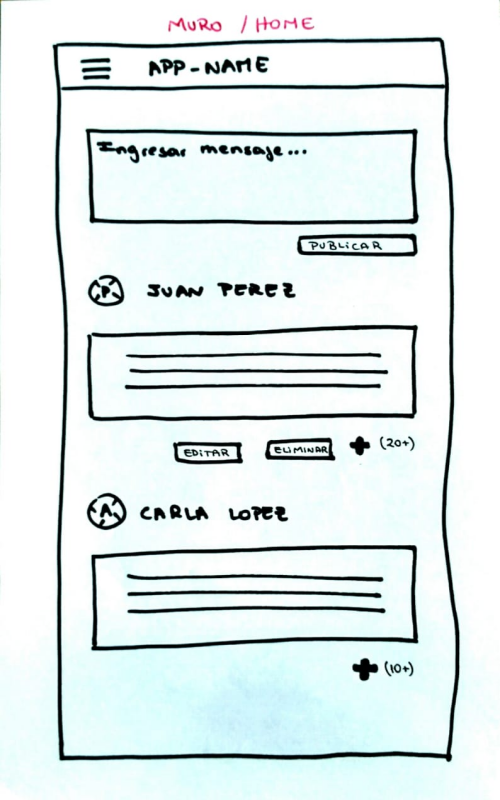 MURO / HOME
APP-NAME
Ingresar mensaje...
PUBLICAR
P JUAN PEREZ
EDITAR ELIMINAR (20+)
A CARLA LOPEZ
(10+)